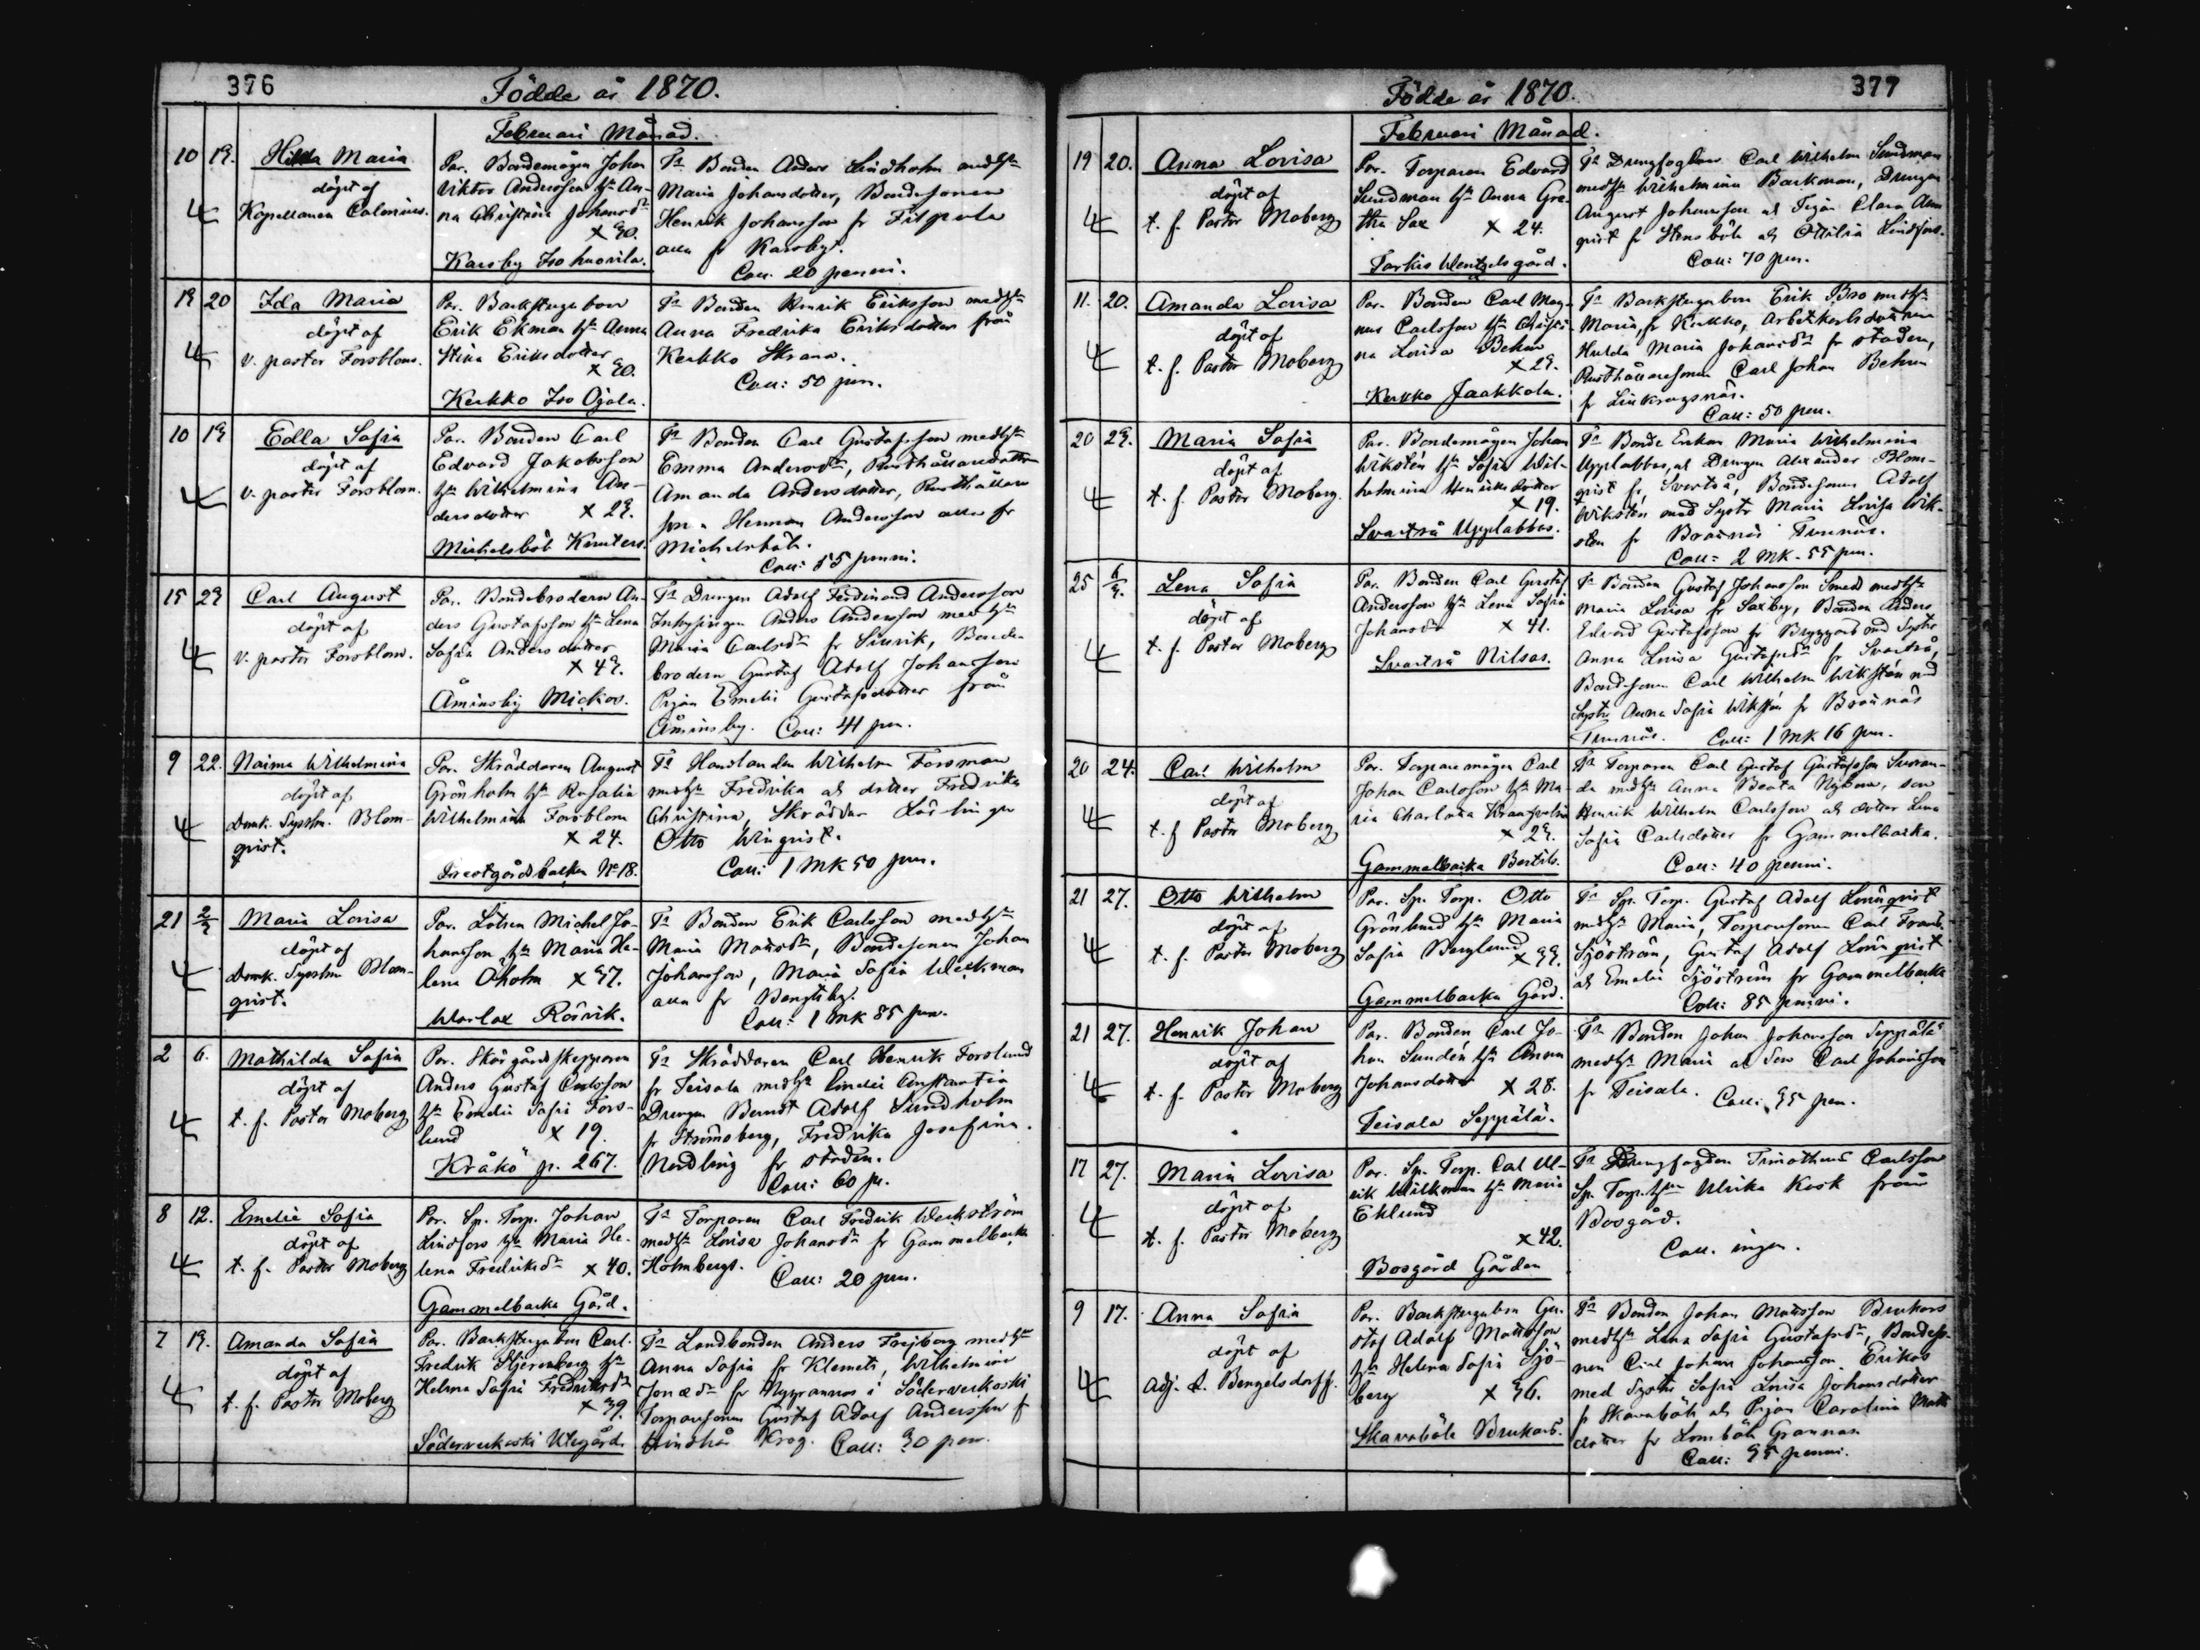 376
Födde år 1870.
Februari Månad.
10 13. Hilda Maria
döpt af
Kapellanen Calonius.
Par. Bondemågen Johan
Viktor Andersson hu An-
na Christina Johansdr
x 30.
Karsby Isohuovila.
Fr Bonden Anders Lindholm med hu
Maria Johansdotter, Bondesonen
Henrik Johansson fr
alla fr Karsby.
Coll: 20 penni.
13 20 Ida Maria
döpt af
v. pastor Forsblom.
Par. Backstugubon
Erik Ekman hu Anna
Stina Eriksdotter
x 30.
Kerkko Iso Ojala.
Fr Bonden Henrik Eriksson med hu
Anna Fredrika Eriksdotter från
Kerkko Skrana.
Coll: 50 pen.
10 13 Edla Sofia
döpt af
v. pastor Forsblom.
Par. Bonden Carl
Edvard Jakobsson
hu Wilhelmina An-
dersdotter x 23.
Michelsböle Knuters.
Fr Bonden Carl Gustafsson med hu
Emma Andersdr, Rusthållaredottern
Amanda Andersdotter, Rusthållare
son Herman Andersson alla fr
Michelsböle.
Coll: 55 penni.
15 23 Carl August
döpt af
v. pastor Forsblom.
Par. Bondebrodern An-
ders Gustafsson hu Lena
Sofia Andersdotter
x 43.
Åminsby Mickos.
Fr Drengen Adolf Ferdinand Andersson
Inhysingen Anders Andersson med hu
Maria Carlsdr fr Sinrik, Bonde
brodern Gustaf Adolf Johansson
Pigan Emelie Gustafsdotter från
Åminsby. Coll: 41 pen.
9 22. Naima Wilhelmina
döpt af
Domk. Sysslm. Blom-
qvist.
Par. Skräddaren August
Grönholm hu Rosalia
Wilhelmina Forsblom
x 24.
Prestgårdsbacken No 18.
Fr Handlanden Wilhelm Forsman
med hu Fredrika och dotter Fredrika
Christina, Skräddar Lärlingen
Otto Winqvist.
Coll: 1 Mk 50 pen.
21 2/3 Maria Lovisa
döpt af
Domk. Sysslm Blom-
qvist.
Par. Lotsen Michel Jo-
hansson hu Maria He-
lena Öholm x 37.
Warlax Rörvik.
Fr Bonden Erik Carlsson med hu
Maria Matsdr, Bondesonen Johan
Johansson, Maria Sofia Weckman
alla fr Bengtsby.
Coll: 1 mk 85 pen.
2 6. Mathilda Sofia
döpt af
t. f. Pastor Moberg
Par. Skärgårdsskepparen
Anders Gustaf Carlsson
hu Emelie Sofia Fors-
lund x 19.
Kråkö p. 267.
Fr Skräddaren Carl Henrik Forslund
fr Teisala med hu Emelie Constantia
Drengen Berndt Adolf Sundholm
fr Strömsberg, Fredrika Josefina
Nordling fr staden.
Coll: 60 p.
8 12. Emelie Sofia
döpt af
t. f. Pastor Moberg
Par. Sp. Torp. Johan
Lindfors hu Maria He-
lena Fredriksdr x 40.
Gammelbacka Gård.
Fr Torparen Carl Fredrik Weckström
med hu Lovisa Johansdr fr Gammelbacka
Holmbergs. Coll: 20 pen.
7 13. Amanda Sofia
döpt af
t. f. Pastor Moberg
Par. Backstugubon Carl
Fredrik Stjerenberg hu
Helena Sofia Fredriksdr
x 39.
Söderveckoski Uhrgård.
Fr Landbonden Anders Frejborg med hu
Anna Sofia fr Klemets, Wilhelmina
Jonaedr fr Nygrannas i Söderveckoski
Torparsonen Gustaf Adolf Andersson f
Hindhår Krog. Coll: 30 pen.
377
Födde år 1870.
Februari Månad.
19 20. Anna Lovisa
döpt af
t. f. Pastor Moberg
Par. Torparen Edvard
Sundman hu Anna Gre-
tha Sax x 24.
Tarkis Wentzelsgård.
Fr Drengfogden Carl Wilhelm Sundman
med hu Wilhelmina Backman, Drengen
August Johansson och Pigan Clara Alm
qvist fr Stensböle och Ottilia Lindfors.
Coll: 70 pen.
11. 20. Amanda Lovisa
döpt af
t. f. Pastor Moberg
Par. Bonden Carl Mag-
nus Carlsson hu Christi-
na Lovisa Behm
x 23.
Kerkko Jaakkola.
Fr Backstugubon Erik Bro med hu
Maria, fr Kerkko, Arbetkarlsdottern
Hulda Maria Johansdr fr staden,
Rusthållaresonen Carl Johan Behm
fr
Coll: 50 pen.
20 23. Maria Sofia
döpt af
t. f. Pastor Moberg.
Par. Bondemågen Johan
Wikstén hu Sofia Wil-
helmina Henriksdotter
x 19.
Svartså Upplabbas.
Fr Bonde Enkan Maria Wilhelmina
Upplabbas, och Drengen Alexander Blom-
qvist fr Svartså, Bondesonen Adolf
Wikstén med Syster Maria Lovisa Wik-
sten fr Boxnäs Tunnäs.
Coll: 2 mk. 55 pen.
25 6/3. Lena Sofia
döpt af
t. f. Pastor Moberg
Par. Bonden Carl Gustaf
Andersson hu Lena Sofia
Johansdr x 41.
Svartså Nilsas.
Fr Bonden Gustaf Johansson Smeds med hu
Maria Lovisa fr Saxby, Bonden Anders
Edvard Gustafsson fr Bryggars med Syster
Anna Lovisa Gustafsdr fr Svartså,
Bondesonen Carl Wilhelm Wikstén med
Syster Anna Sofia Wikstén fr Boxnäs
Tunnäs. Coll: 1 Mk 16 pen.
20 24. Carl Wilhelm
döpt af
t. f. Pastor Moberg
Par. Torparemågen Carl
Johan Carlsson hu Ma-
ria Charlotta
x 23.
Gammelbacka Bertils.
Fr Torparen Carl Gustaf Gustafsson
med hu Anna Beata Nyman, son
Henrik Wilhelm Carlsson och dotter Lena
Sofia Carlsdotter fr Gammelbacka.
Coll: 40 penni.
21 27. Otto Wilhelm
döpt af
t. f. Pastor Moberg
Par. Sp. Torp. Otto
Grönlund hu Maria
Sofia Berglund
x 33.
Gammelbacka Gård.
Fr Sp. Torp. Gustaf Adolf Lönnqvist
med hu Maria, Torparsonen Carl Frans
Sjöström, Gustaf Adolf Lönnqvist
och Emelie Sjöström fr Gammelbacka
Coll: 85 penni.
21 27. Henrik Johan
döpt af
t. f. Pastor Moberg
Par. Bonden Carl Jo-
han Sundén hu Anna
Johansdotter x 28.
Teisala Seppälä.
Fr Bonden Johan Johansson Seppälä
med hu Maria och Son Carl Johansson
fr Teisala. Coll: 35 pen.
17 27. Maria Lovisa
döpt af
t. f. Pastor Moberg
Par. Sp. Torp. Carl Ul-
rik Wilkman hu Maria
Eklund
x 42.
Bosgård Gården
Fr Drengfogden Timotheus Carlsson
Sp. Torp. hu Ulrika Kock från
Bosgård.
Coll. ingen.
9 17. Anna Sofia
döpt af
Adj. A. Bengelsdorff.
Par. Backstugubon Gu-
staf Adolf Mattsson
hu Helena Sofia Sjö-
berg x 36.
Skavaböle Brukars.
Fr Bonden Johan Matsson Brukars
med hu Lena Sofia Gustafsdr, Bondeso-
nen Carl Johan Johansson Erikas
med Syster Sofia Lovisa Johansdotter
fr Skavaböle och Pigan Carolina Matts
dotter fr Lomböle Grannas
Coll: 35 penni.